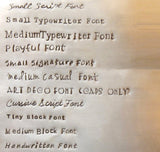 Small Script Font
Small Typewriter Font
MediumTypewriter Font
Playful Font
Small Signature Font
medium Casual Font
ART DECO FONT (CAPS ONLY)
Cursive Script Font
Tiny Block Font
Medium Block Font
Handwritten Font